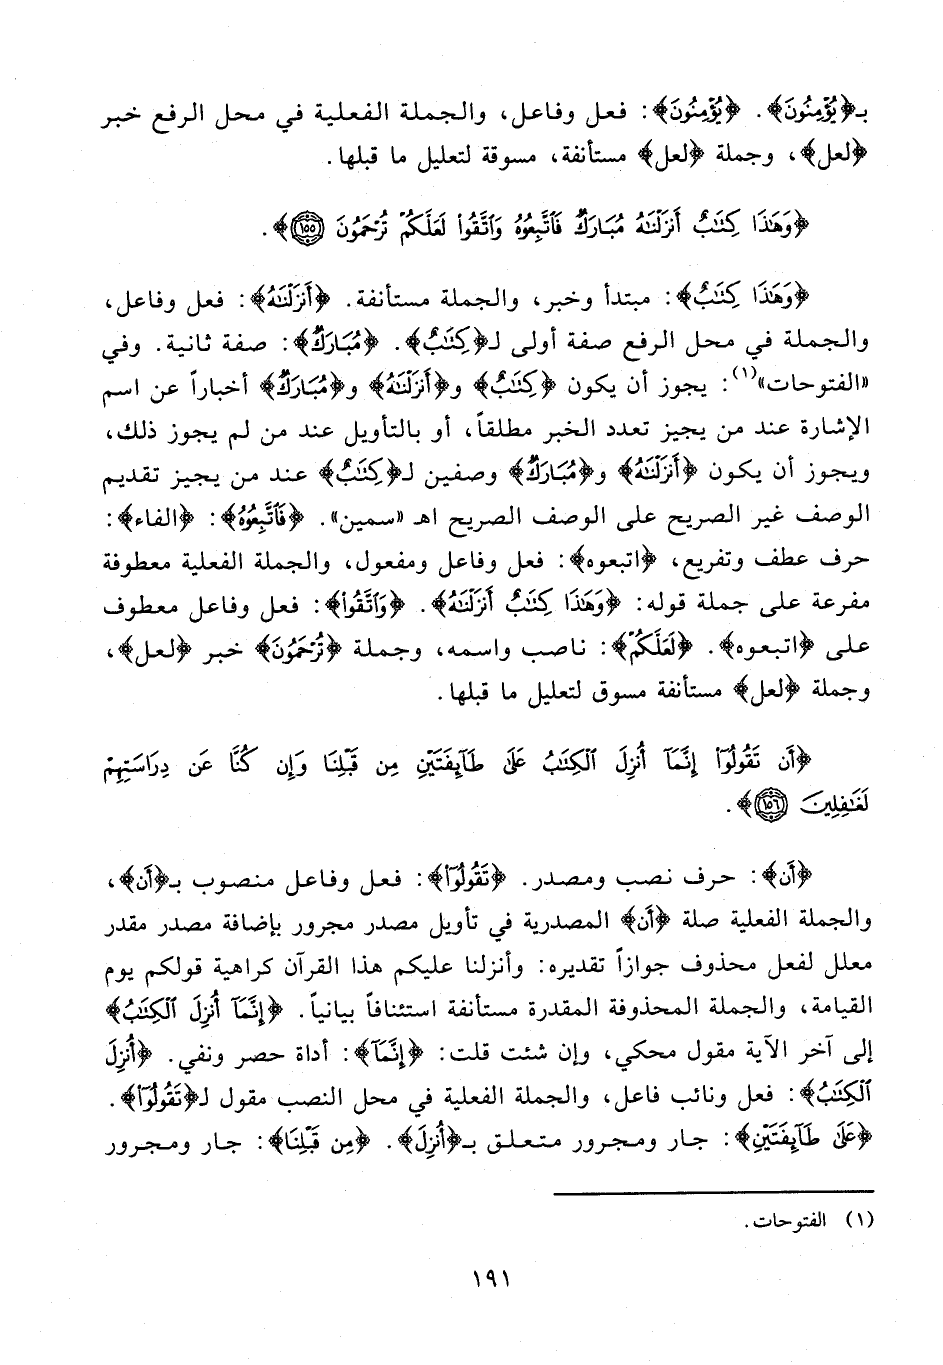 بـ﴿يُؤْمِنُونَ﴾. ﴿يُؤْمِنُونَ﴾: فعل وفاعل، والجملة الفعلية في محل الرفع خبر
﴿لعل﴾، وجملة ﴿لعل﴾ مستأنفة، مسوقة لتعليل ما قبلها.
﴿وَهَٰذَا كِتَٰبٌ أَنزَلْنَٰهُ مُبَارَكٌ فَٱتَّبِعُوهُ وَٱتَّقُوا۟ لَعَلَّكُمْ تُرْحَمُونَ ١٥٥﴾.
﴿وَهَٰذَا كِتَٰبٌ﴾: مبتدأ وخبر، والجملة مستأنفة. ﴿أَنزَلْنَٰهُ﴾: فعل وفاعل،
والجملة في محل الرفع صفة أولى لـ﴿كِتَٰبٌ﴾. ﴿مُبَارَكٌ﴾: صفة ثانية. وفي
«الفتوحات»(١): يجوز أن يكون ﴿كِتَٰبٌ﴾ و﴿أَنزَلْنَٰهُ﴾ و﴿مُبَارَكٌ﴾ أخباراً عن اسم
الإشارة عند من يجيز تعدد الخبر مطلقاً، أو بالتأويل عند من لم يجوز ذلك،
ويجوز أن يكون ﴿أَنزَلْنَٰهُ﴾ و﴿مُبَارَكٌ﴾ وصفين لـ﴿كِتَٰبٌ﴾ عند من يجيز تقديم
الوصف غير الصريح على الوصف الصريح اهـ «سمين». ﴿فَٱتَّبِعُوهُ﴾: ﴿الفاء﴾:
حرف عطف وتفريع، ﴿اتبعوه﴾: فعل وفاعل ومفعول، والجملة الفعلية معطوفة
مفرعة على جملة قوله: ﴿وَهَٰذَا كِتَٰبٌ أَنزَلْنَٰهُ﴾. ﴿وَٱتَّقُوا۟﴾: فعل وفاعل معطوف
على ﴿اتبعوه﴾. ﴿لَعَلَّكُمْ﴾: ناصب واسمه، وجملة ﴿تُرْحَمُونَ﴾ خبر ﴿لعل﴾،
وجملة ﴿لعل﴾ مستأنفة مسوق لتعليل ما قبلها.
﴿أَن تَقُولُوٓا۟ إِنَّمَآ أُنزِلَ ٱلْكِتَٰبُ عَلَىٰ طَآئِفَتَيْنِ مِن قَبْلِنَا وَإِن كُنَّا عَن دِرَاسَتِهِمْ
لَغَٰفِلِينَ ١٥٦﴾.
﴿أَن﴾: حرف نصب ومصدر. ﴿تَقُولُوٓا۟﴾: فعل وفاعل منصوب بـ﴿أَن﴾،
والجملة الفعلية صلة ﴿أَن﴾ المصدرية في تأويل مصدر مجرور بإضافة مصدر مقدر
معلل لفعل محذوف جوازاً تقديره: وأنزلنا عليكم هذا القرآن كراهية قولكم يوم
القيامة، والجملة المحذوفة المقدرة مستأنفة استئنافاً بيانياً. ﴿إِنَّمَآ أُنزِلَ ٱلْكِتَٰبُ﴾
إلى آخر الآية مقول محكي، وإن شئت قلت: ﴿إِنَّمَآ﴾: أداة حصر ونفي. ﴿أُنزِلَ
ٱلْكِتَٰبُ﴾: فعل ونائب فاعل، والجملة الفعلية في محل النصب مقول لـ﴿تَقُولُوٓا۟﴾.
﴿عَلَىٰ طَآئِفَتَيْنِ﴾: جار ومجرور متعلق بـ﴿أُنزِلَ﴾. ﴿مِن قَبْلِنَا﴾: جار ومجرور
(١) الفتوحات.
١٩١